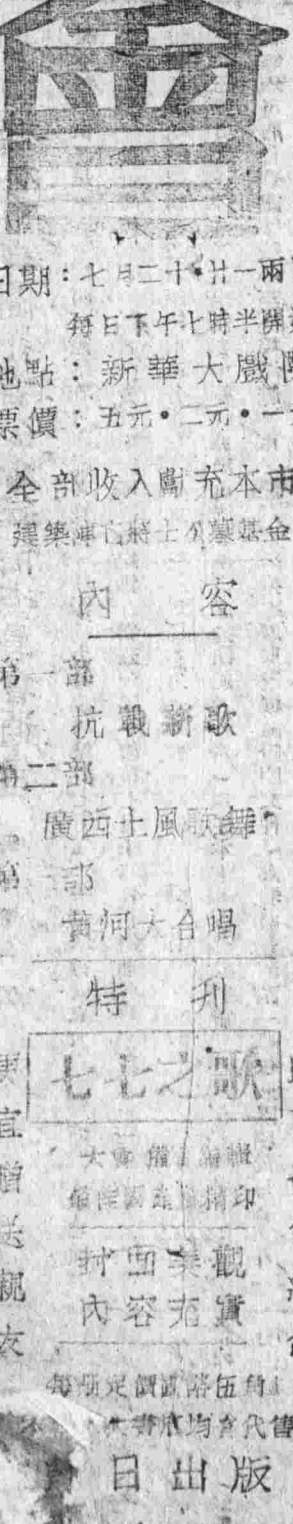 會
日期：七月二十·廿一兩
每日下午七時半開
地點：新華大戲
票價：五元·二元·一
全部收入撥充本市
建築陣亡將士公墓基金
內容
第一部
抗戰新歌
第二部
廣西土風歌舞
第三部
黃河大合唱
特刊
七七之歌
精印
封面美觀
內容充實
每冊定價國幣伍角
書店均有代售
日出版
宜贈送親友